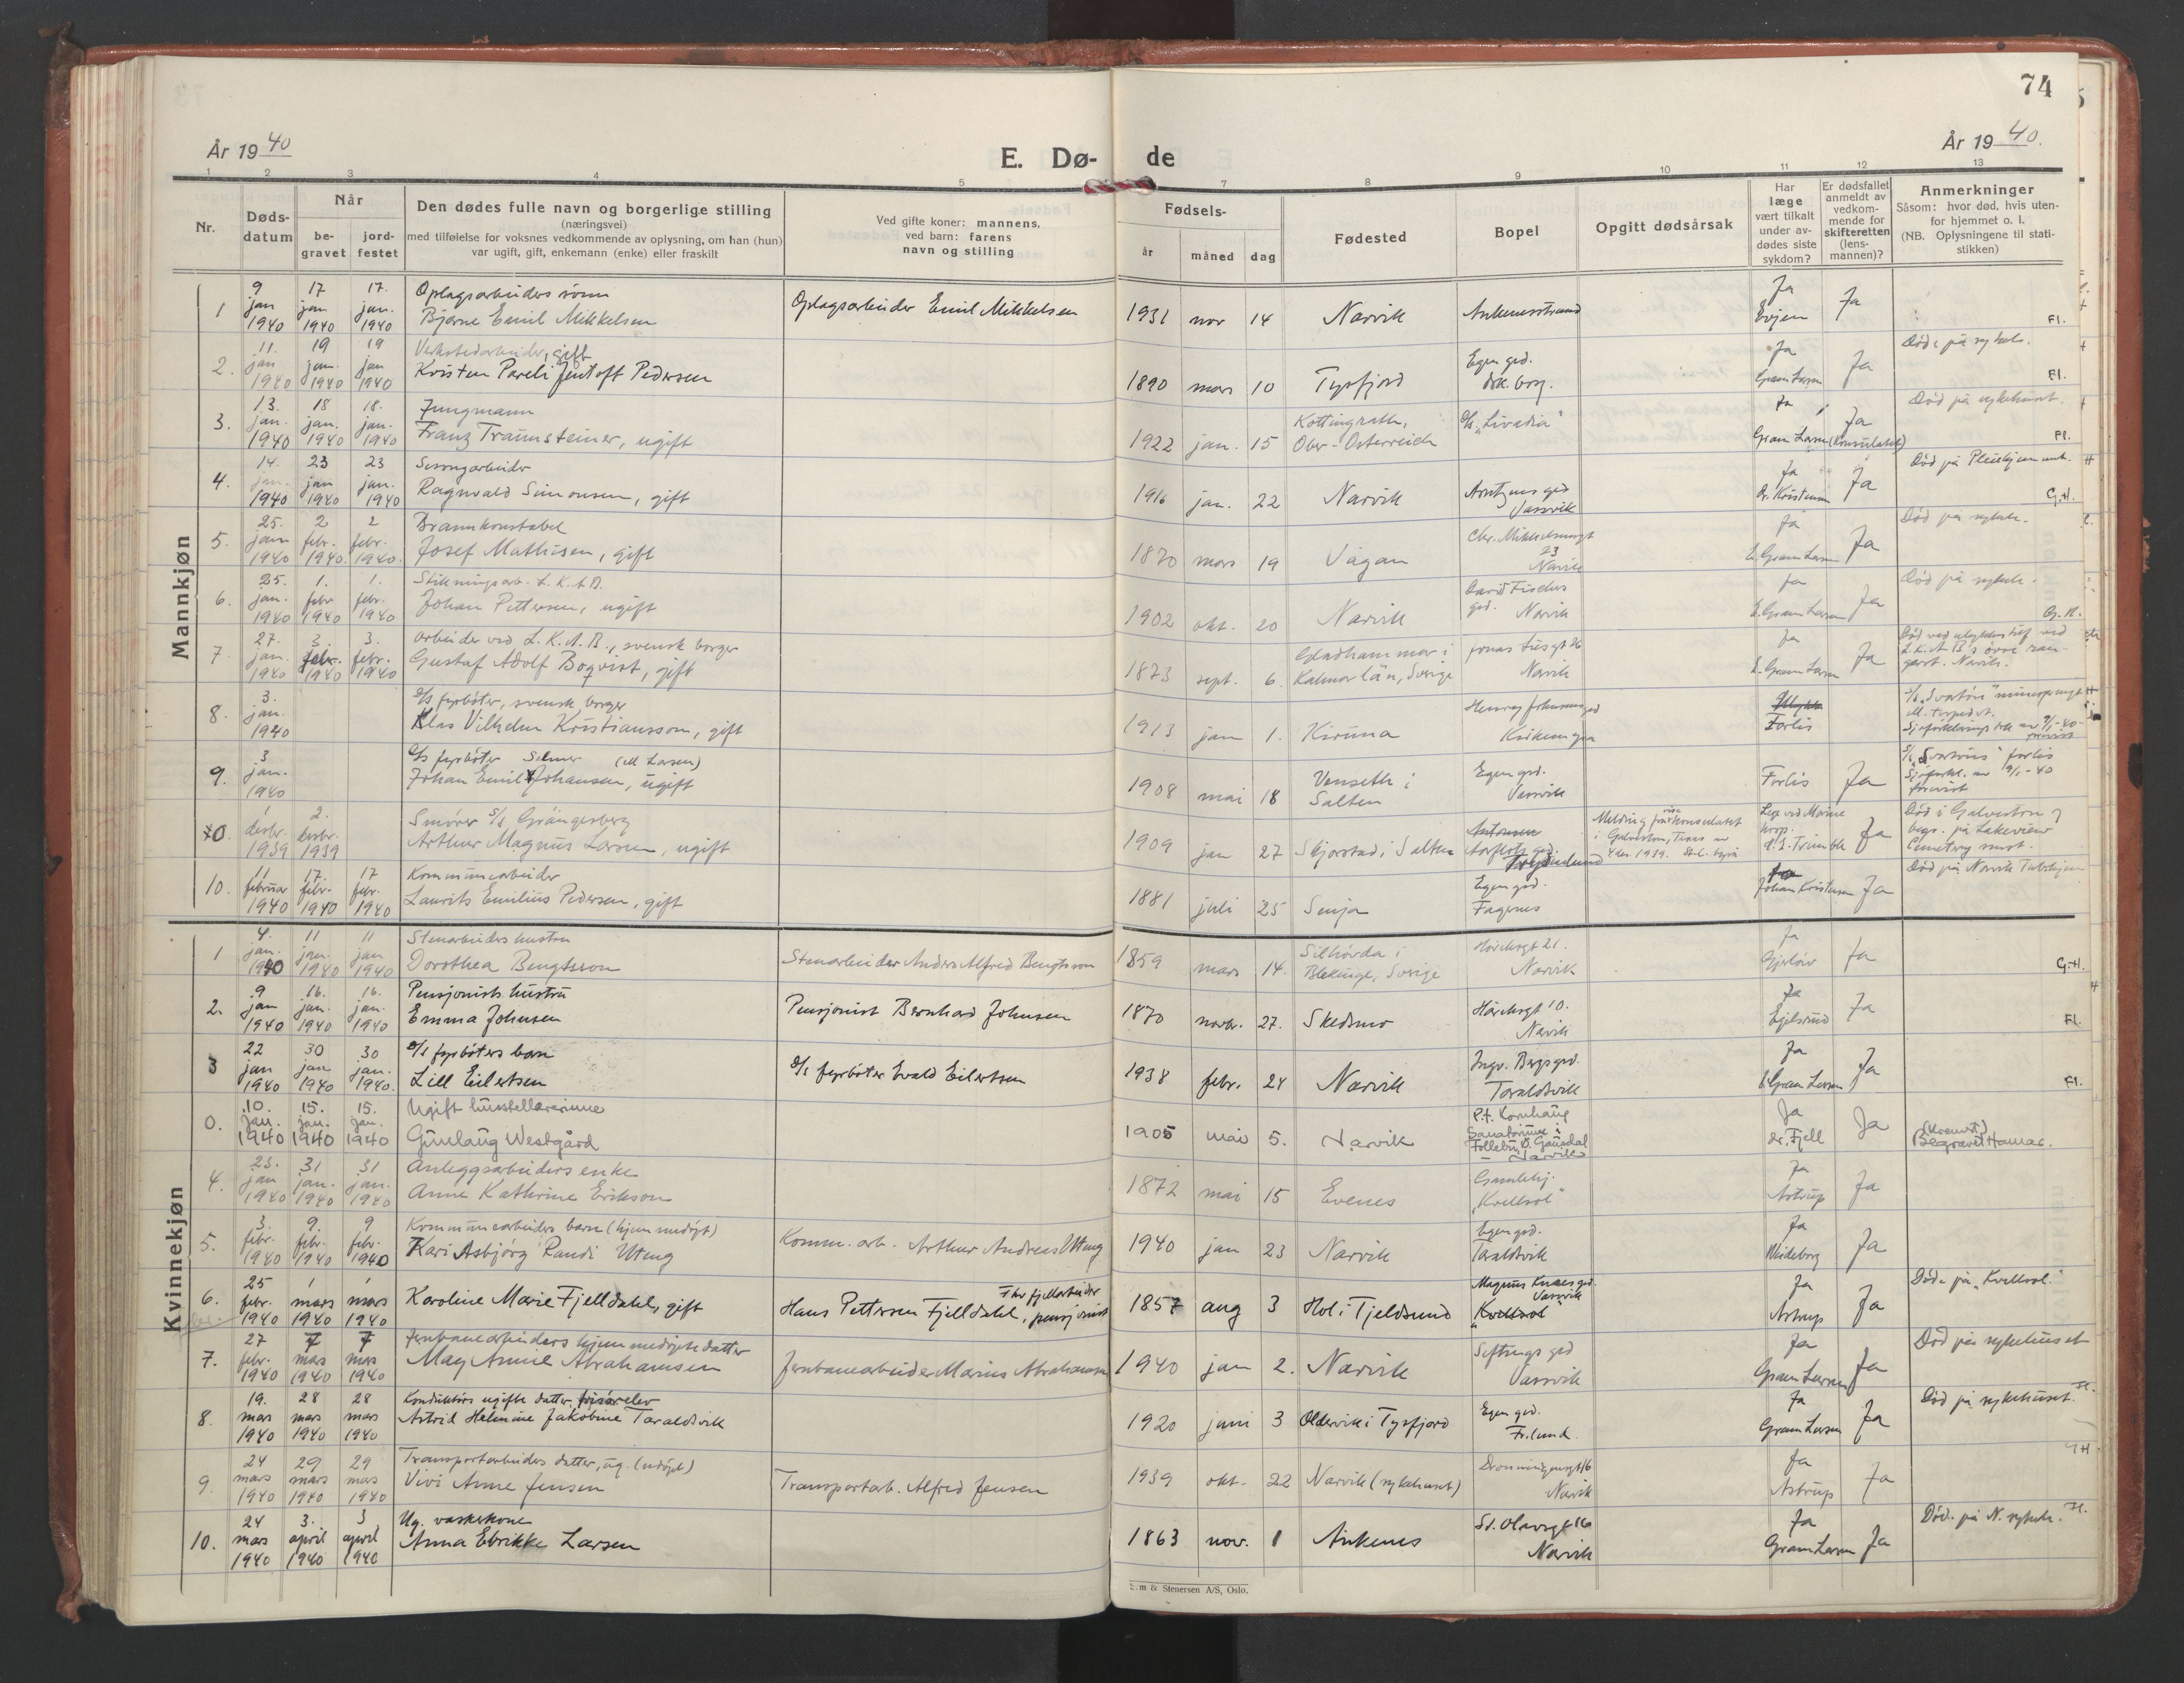 74
År 1940
E. Dø-
de
År 1940.
1 2 3 4 5 7 8 9 10 11 12 13
Nr.
Døds-
datum
Når
be-
gravet
jord-
festet
Den dødes fulle navn og borgerlige stilling
(næringsvei)
med tilføielse for voksnes vedkommende av oplysning, om han (hun)
var ugift, gift, enkemann (enke) eller fraskilt
Ved gifte koner: mannens,
ved barn: farens
navn og stilling
Fødsels-
år
måned
dag
Fødested
Bopel
Opgitt dødsårsak
Har
læge
vært tilkalt
under av-
dødes siste
sykdom?
Er dødsfallet
anmeldt av
vedkom-
mende for
skifteretten
(lens-
mannen)?
Anmerkninger
Såsom: hvor død, hvis uten-
for hjemmet o. l.
(NB. Oplysningene til stati-
stikken)
Mannkjøn
1 9 jan 1940 17 jan 1940 17. jan. 1940 Oplagsarbeiders sønn
Bjarne Emil Mikkelsen Oplagsarbeider Emil Mikkelsen 1931 nov 14 Narvik Ankenesstrand Ja Evjen Ja Fl.
2. 11. jan 1940 19 jan. 1940 19 jan 1940 Verkstedarbeider, gift
Kristen Pareli Jentoft Pedersen 1890 mars 10 Tysfjord Egen gd. Ja Gram Larsen Ja Død på sykeh. Fl.
3. 13. jan. 1940 18 jan. 1940 18. jan. 1940 Jungmann
Franz Traunsteiner, ugift 1922 jan. 15 Ober-Österreich "Livadia" Ja Gram Larsen Ja (Konsulatet) Død på sykehuset. Fl.
4. 14. jan. 1940 23 jan 1940 23 jan. 1940 Sesongarbeider
Ragnvald Simonsen, gift 1916 jan. 22 Narvik Arntzens gd Vassvik Ja Dr. Kristensen Ja Død på Pleiehjemmet. G.H.
5. 25. jan 1940 2 febr. 1940. 2 febr. 1940. Brannkonstabel
Josef Mathisen, gift 1870 mars 19 Vågan Chr. Mikkelsensgt 23 Narvik Ja E. Gram Larsen Ja Død på sykeh.
6. 25. jan. 1940 1. febr 1940 1. febr. 1940 Stikningsarb. L.K.A.B.
Johan Pettersen, ugift 1902 okt. 20 Narvik David Fischers gd. Narvik Ja E. Gram Larsen Ja Død på sykeh. G.H.
7 27. jan. 1940 3. febr. 1940 3. febr. 1940 Arbeider ved L.K.A.B., svensk borger
Gustaf Adolf Boqvist, gift 1873 sept. 6. Gladhammar i Kalmar län, Sverige Jonas Liesgt 26 Narvik Ja E. Gram Larsen Ja Død ved ulykkestilf. ved L.K.A.B's øvre ran- Narvik.
8. 3. jan. 1940 fyrbøter, svensk borger
Klas Vilhelm Kristiansson, gift 1913 jan 1. Kiruna Forlis "Svartön" minesprengt
9. 3 jan. 1940 fyrbøter Selmer (ell Larsen)
Johan Emil Johansen, ugift 1908 mai 18 Venseth i Salten Egen gd. Vassvik Forlis Ja "Svartøns" forlis
10. 1 desbr. 1939 2. desbr. 1939 Smører S/S Grängesberg
Arthur Magnus Larsen, ugift 1909 jan 27 Skjerstad i Salten Melding fra konsulatet i Galveston, Texas av 4 des. 1939. Lege ved Marine hosp. Trimble Ja Død i Galveston og begr. på Lakeview Cemetery smst.
10. 11 februar 1940 17. febr. 1940 17 febr. 1940 Kommunearbeider
Laurits Emilius Pedersen, gift 1881 juli 25 Senja Egen gd. Fagernes Johan Kristensen Ja Død på Narvik Tubhjem
Kvinnekjøn
1 4. jan. 1940 11 jan. 1940 11 jan 1940 Stenarbeiders hustru
Dorothea Bengtsson Stenarbeider Anders Alfred Bengtsson 1859 mars 14. Sillhövda i Blekinge, Sverige Håreksgt 21. Narvik Ja Gjerløv Ja G.H.
2. 9 jan 1940 16. jan. 1940 16. jan. 1940 Pensjonists hustru
Emma Johnsen Pensjonist Bernhard Johnsen 1870 novbr. 27. Skedsmo Håreksgt 10. Narvik Ja Egilsrud Ja Fl.
3 22 jan 1940 30 jan 1940 30 jan. 1940. fyrbøters barn
Lill Eilertsen fyrbøter Evald Eilertsen 1938 febr. 24 Narvik Ingv. Bergs gd. Taraldsvik Ja E. Gram Larsen Ja Fl.
0. 10. jan. 1940 15. jan. 1940 15. jan. 1940 Ugift husstellærerinne
Gunlaug Westgård 1905 mai 5. Narvik P.t. Kornhaug Sanatorium i Follebu Ø. Gausdal - Narvik Ja dr. Fjell Ja (Kremert) Begravet Hamar.
4. 23. jan 1940 31 jan. 1940 31 jan. 1940 Anleggsarbeiders enke
Anne Kathrine Erikson 1872 mai 15 Evenes Gamlehj. "Kveldsol" Ja Astrup Ja
5. 3. febr. 1940 9. febr. 1940 9 febr. 1940 Kommunearbeiders barn (hjemmedøpt)
Kari Asbjørg Randi Uteng Komm. arb. Arthur Andreas Uteng 1940 jan 23 Narvik Egen gd. Taraldsvik Ja Wideborg Ja
6. 25 febr. 1940 1 mars 1940 1 mars 1940 Karoline Marie Fjelldahl, gift Fhv fjellarbeider
Hans Pettersen Fjelldahl, pensjonist 1857 aug 3 Hol i Tjeldsund Magnus Knaes gd. Vassvik "Kveldsol" Ja Astrup Ja Død på "Kveldsol".
7. 27 febr. 1940 7 mars 1940 7 mars 1940 Jernbanearbeiders hjemmedøpte datter
May Annie Abrahamsen Jernbanearbeider Marius Abrahamsen 1940 jan 2. Narvik Siftings gd Vassvik Ja Gram Larsen Ja Død på sykehuset
8. 19. mars 1940 28 mars 1940 28 mars 1940 Konduktørs ugifte datter, frisørelev
Astrid Helmine Jakobine Taraldsvik 1920 juni 3 Oldervik i Tysfjord Egen gd. Fr.lund. Ja Gram Larsen Ja Død på sykehuset. Fl.
9. 24 mars 1940 29 mars 1940 29 mars 1940 Transportarbeiders datter, ug. (udøpt)
Vivi Anne Jensen Transportarb. Alfred Jensen 1939 okt. 22 Narvik (sykehuset) Dronningensgt 16 Narvik Ja Astrup Ja GH
10. 24 mars 1940 3. april 1940 3 april 1940 Ug. vaskekone
Anna Ebrikke Larsen 1863 nov. 1 Ankenes St. Olavsgt 16 Narvik Ja Gram Larsen Ja Død på N. sykeh. Fl.
& Stenersen A/S, Oslo.